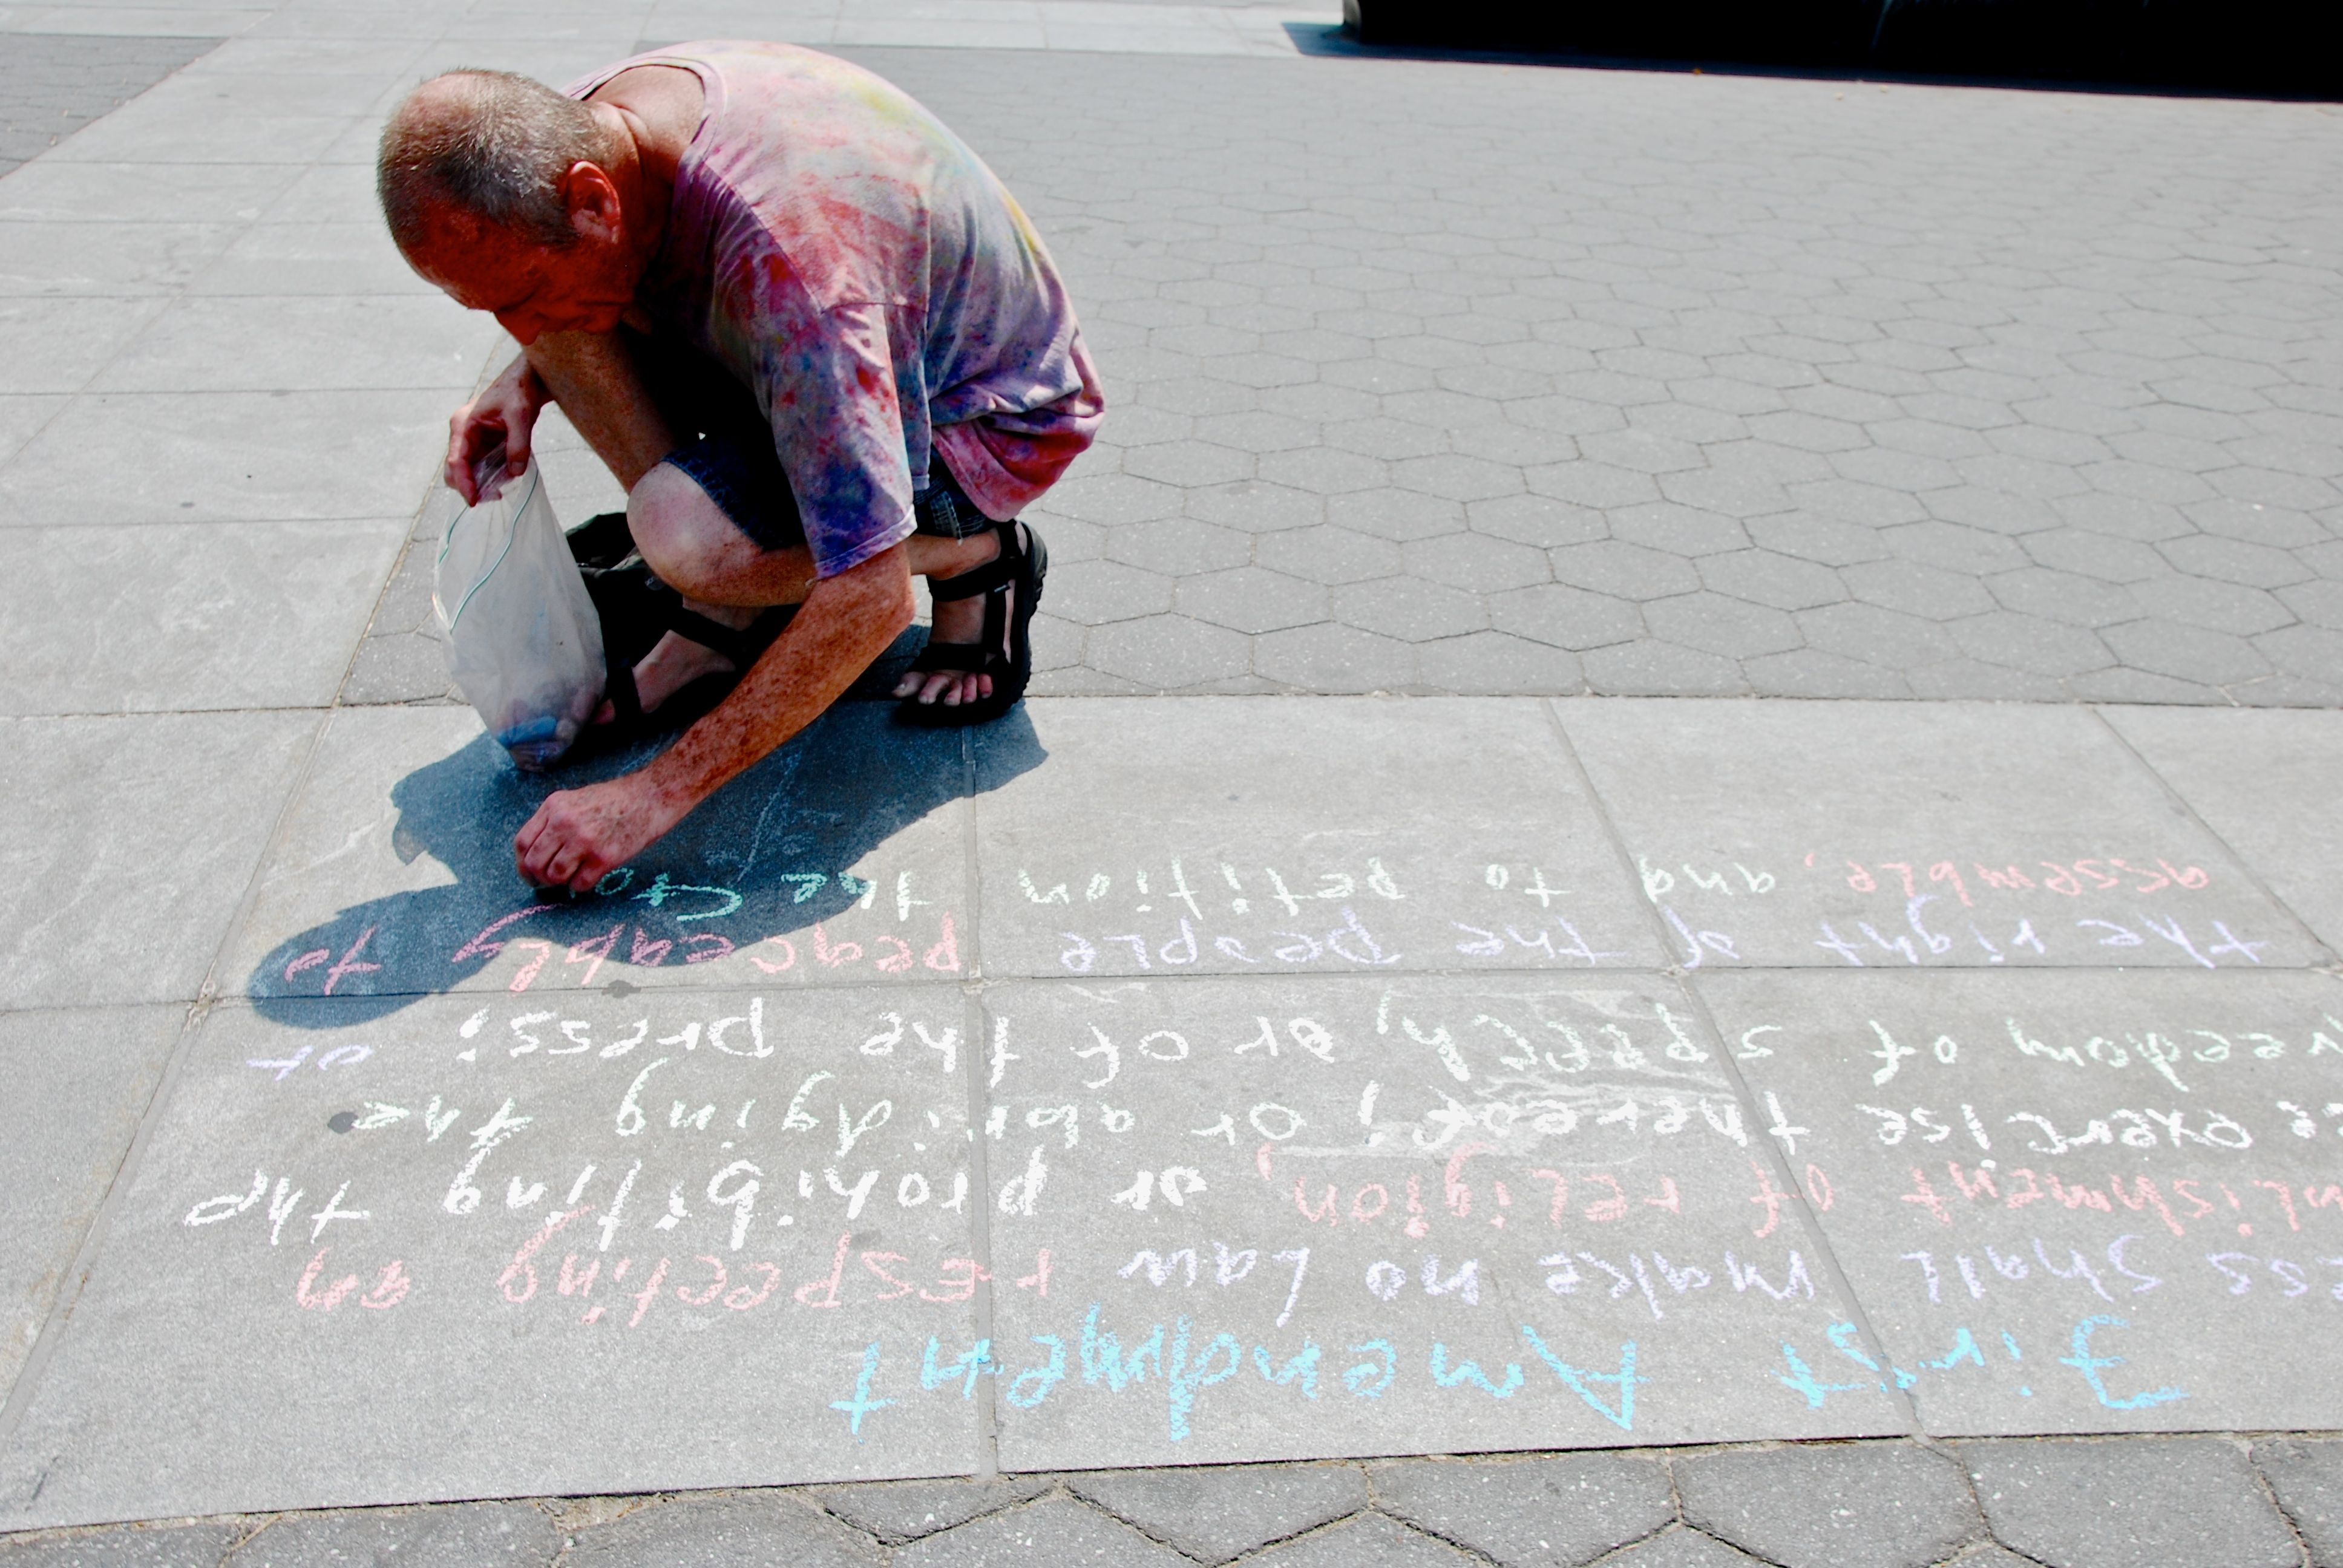 First Amendment
ess shall make no Law respecting an
lishment of religion, or prohibiting the
ee exercise thereof, or abridging the
reedom of speech, or of the press; or
the right of the people peaceably to
assemble, and to petition the